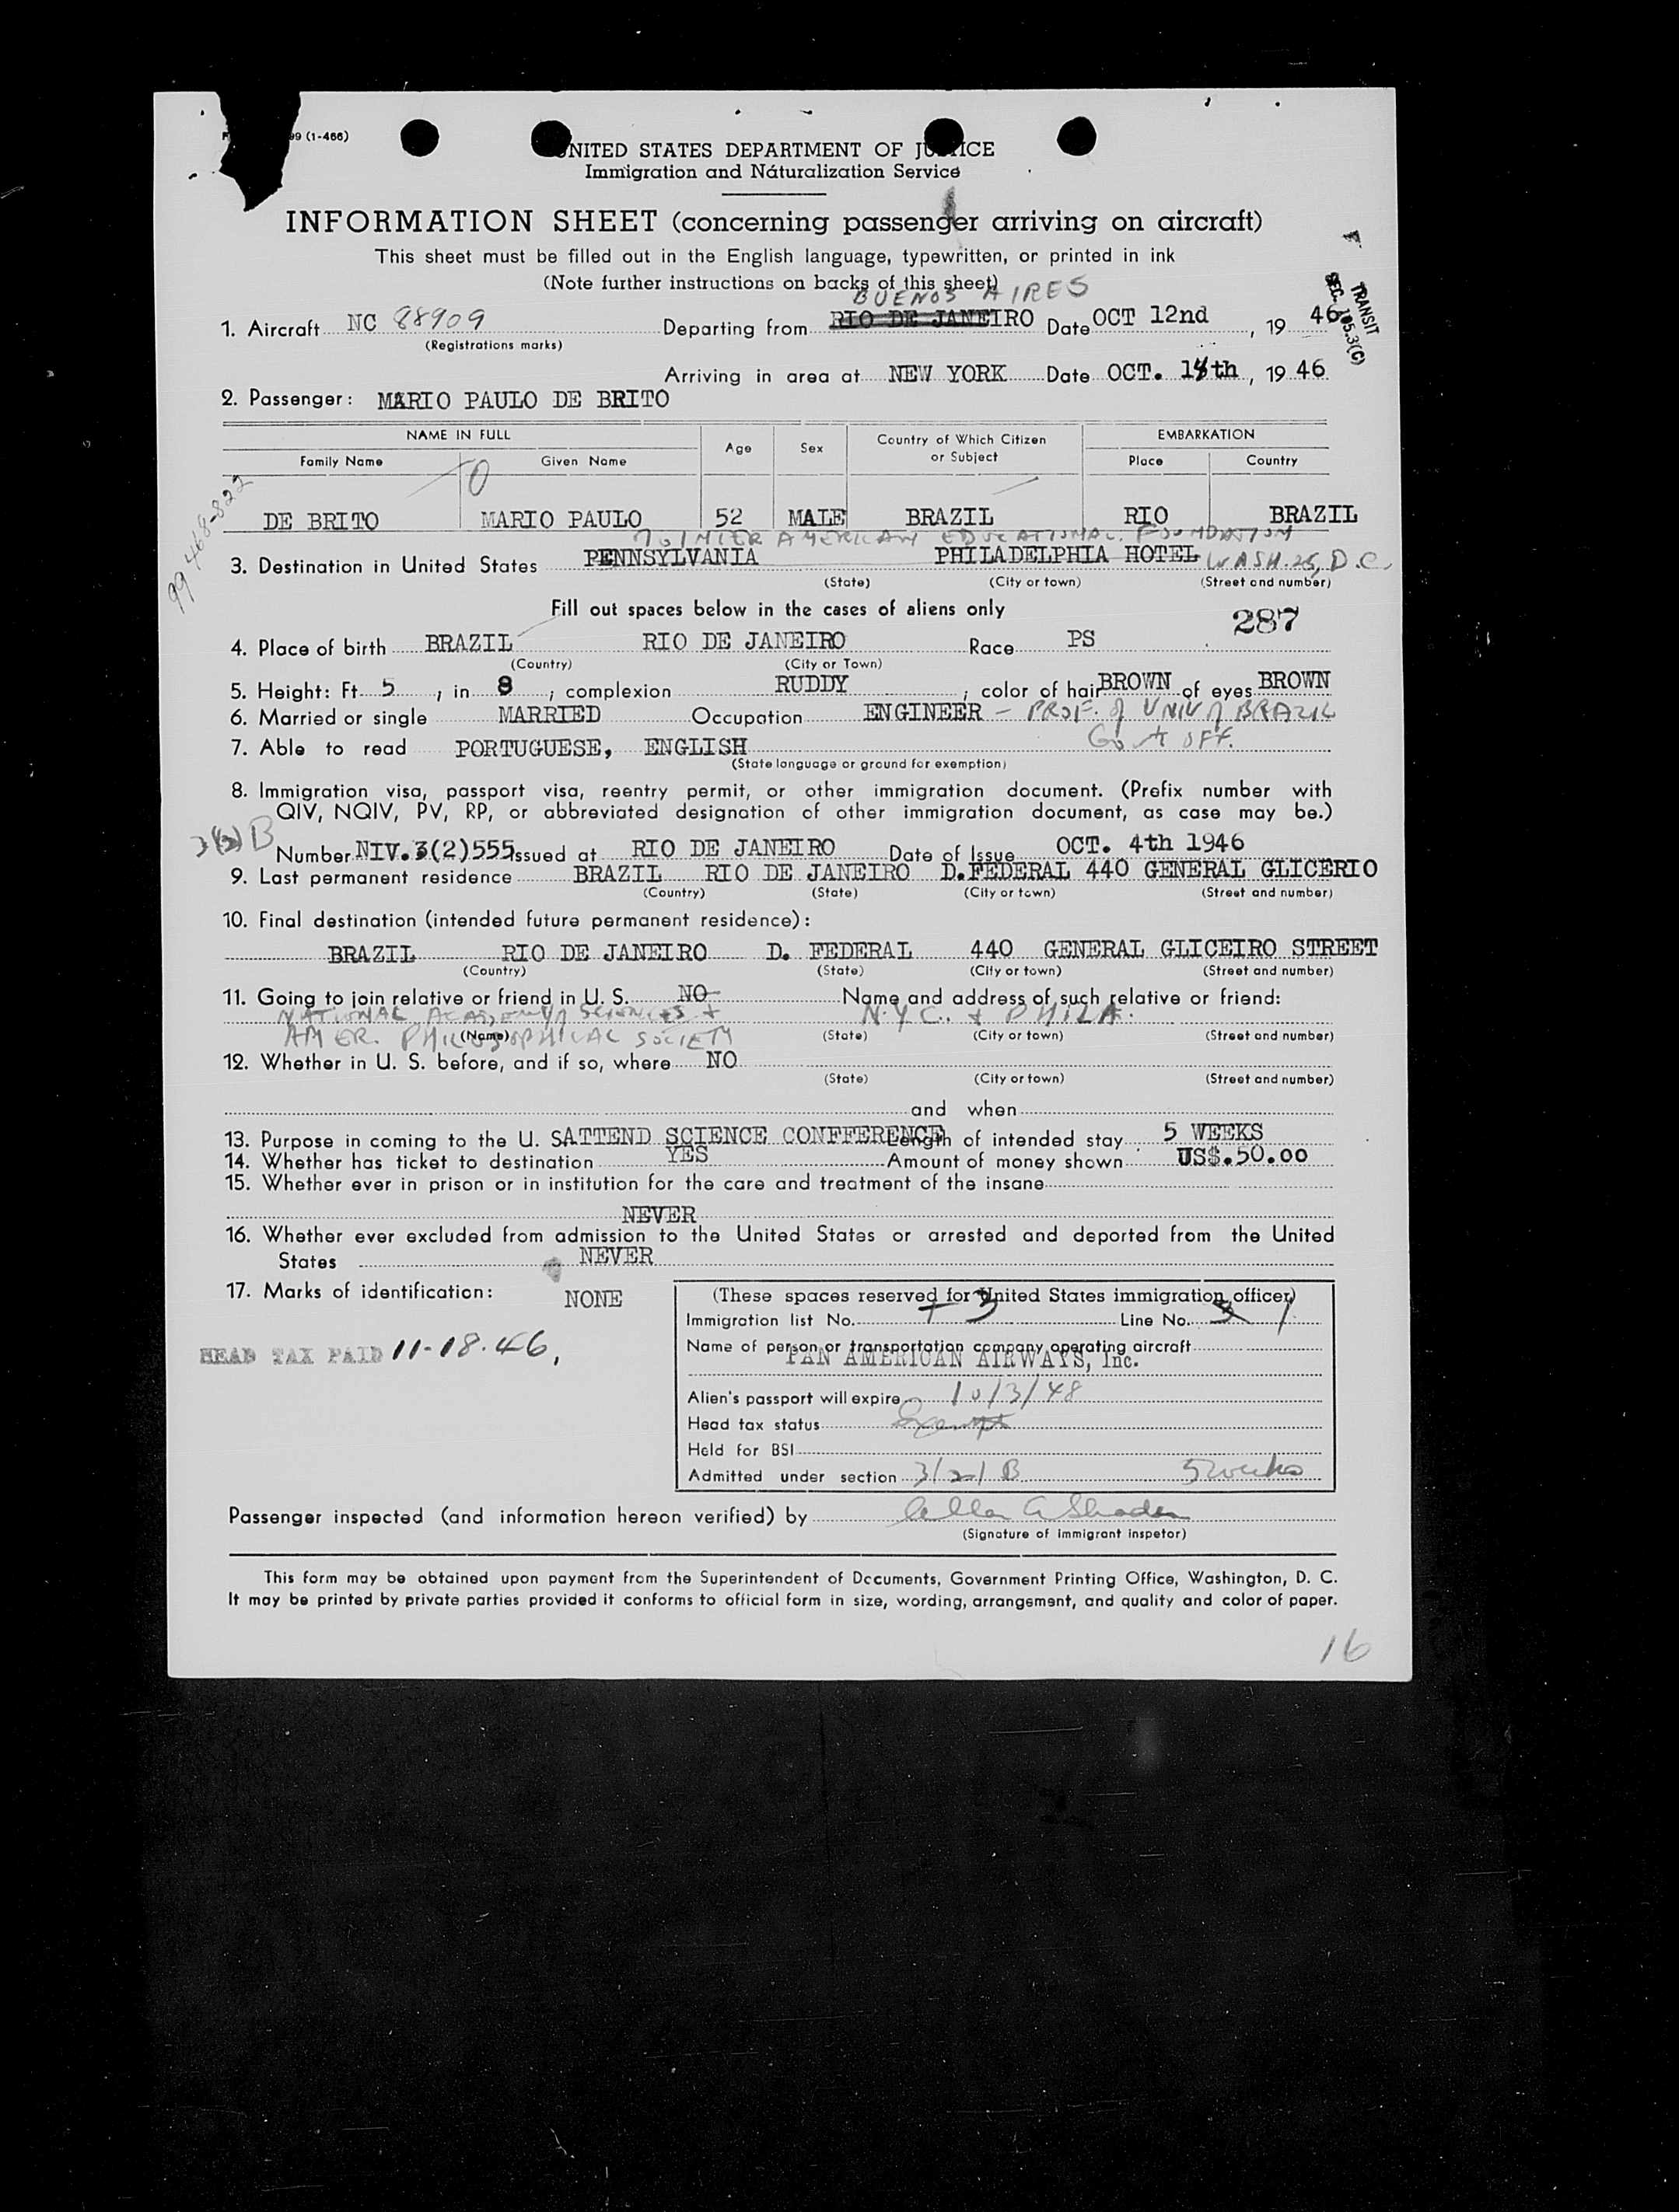 99 (1-466)
UNITED STATES DEPARTMENT OF JUSTICE
Immigration and Naturalization Service
INFORMATION SHEET (concerning passenger arriving on aircraft)
This sheet must be filled out in the English language, typewritten, or printed in ink
(Note further instructions on backs of this sheet)
BUENOS AIRES
1. Aircraft NC 88909 Departing from RIO DE JANEIRO Date OCT 12nd, 19 46
(Registrations marks)
TRANSIT
SEC. 105.3(C)
Arriving in area at NEW YORK Date OCT. 14th, 19 46
2. Passenger: MARIO PAULO DE BRITO
NAME IN FULL Age Sex Country of Which Citizen or Subject EMBARKATION
Family Name Given Name Place Country
DE BRITO MARIO PAULO 52 MALE BRAZIL RIO BRAZIL
99468-822
% INTER AMERICAN EDUCATIONAL FOUNDATION
3. Destination in United States PENNSYLVANIA PHILADELPHIA HOTEL WASH. 25, D.C.
(State) (City or town) (Street and number)
Fill out spaces below in the cases of aliens only
287
4. Place of birth BRAZIL RIO DE JANEIRO Race PS
(Country) (City or Town)
5. Height: Ft. 5, in 8; complexion RUDDY; color of hair BROWN of eyes BROWN
6. Married or single MARRIED Occupation ENGINEER - PROF. of UNIV of BRAZIL
Gov't OFF.
7. Able to read PORTUGUESE, ENGLISH
(State language or ground for exemption)
8. Immigration visa, passport visa, reentry permit, or other immigration document. (Prefix number with
QIV, NQIV, PV, RP, or abbreviated designation of other immigration document, as case may be.)
3(2) B
Number NIV. 3(2)555 Issued at RIO DE JANEIRO Date of Issue OCT. 4th 1946
9. Last permanent residence BRAZIL RIO DE JANEIRO D.FEDERAL 440 GENERAL GLICERIO
(Country) (State) (City or town) (Street and number)
10. Final destination (intended future permanent residence):
BRAZIL RIO DE JANEIRO D. FEDERAL 440 GENERAL GLICEIRO STREET
(Country) (State) (City or town) (Street and number)
11. Going to join relative or friend in U. S. NO Name and address of such relative or friend:
NATIONAL ACADEMY of SCIENCES + N.Y.C. + PHILA.
AMER. PHILOSOPHICAL SOCIETY
(Name) (State) (City or town) (Street and number)
12. Whether in U. S. before, and if so, where NO
(State) (City or town) (Street and number)
and when
13. Purpose in coming to the U. S. ATTEND SCIENCE CONFFERENCE Length of intended stay 5 WEEKS
14. Whether has ticket to destination YES Amount of money shown US$.50.00
15. Whether ever in prison or in institution for the care and treatment of the insane
NEVER
16. Whether ever excluded from admission to the United States or arrested and deported from the United
States NEVER
17. Marks of identification: NONE
HEAD TAX PAID 11-18-46,
(These spaces reserved for United States immigration officer)
Immigration list No. 3 Line No. 1
Name of person or transportation company operating aircraft
PAN AMERICAN AIRWAYS, Inc.
Alien's passport will expire 10/3/48
Head tax status Exempt
Held for BSI
Admitted under section 3/2/ B 5 weeks
Passenger inspected (and information hereon verified) by
(Signature of immigrant inspetor)
This form may be obtained upon payment from the Superintendent of Documents, Government Printing Office, Washington, D. C.
It may be printed by private parties provided it conforms to official form in size, wording, arrangement, and quality and color of paper.
16